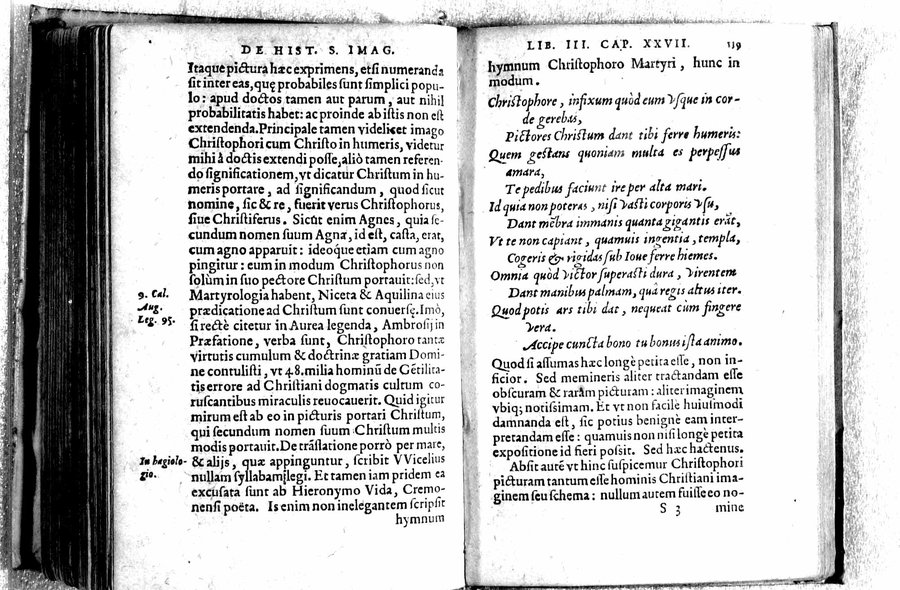 DE HIST. S. IMAG.
Itaque pictura hæc exprimens, etsi numeranda
sit inter eas, quę probabiles sunt simplici popu-
lo: apud doctos tamen aut parum, aut nihil
probabilitatis habet: ac proinde ab istis non est
extendenda. Principale tamen videlicet imago
Christophori cum Christo in humeris, videtur
mihi à doctis extendi posse, aliò tamen referen-
do significationem, vt dicatur Christum in hu-
meris portare, ad significandum, quod sicut
nomine, sic & re, fuerit verus Christophorus,
siue Christiferus. Sicùt enim Agnes, quia se-
cundum nomen suum Agna, id est, casta, erat,
cum agno apparuit: ideóque etiam cum agno
pingitur: eum in modum Christophorus non
solùm in suo pectore Christum portauit: sed, vt
9. Cal.
Aug.
Leg. 95.
Martyrologia habent, Niceta & Aquilina eius
prædicatione ad Christum sunt conuersę. Imò,
si rectè citetur in Aurea legenda, Ambrosij in
Præfatione, verba sunt, Christophoro tantæ
virtutis cumulum & doctrinæ gratiam Domi-
ne contulisti, vt 48. milia hominū de Gētilita-
tis errore ad Christiani dogmatis cultum co-
ruscantibus miraculis reuocauerit. Quid igitur
mirum est ab eo in picturis portari Christum,
qui secundum nomen suum Christum multis
modis portauit. De trāslatione porrò per mare,
In hagiolo-
gio.
& alijs, quæ appinguntur, scribit VVicelius
nullam syllabam legi. Et tamen iam pridem ea
excusata sunt ab Hieronymo Vida, Cremo-
nensi poëta. Is enim non inelegantem scripsit
hymnum
LIB. III. CAP. XXVII. 139
hymnum Christophoro Martyri, hunc in
modum.
Christophore, infixum quòd eum vsque in cor-
de gerebas,
Pictores Christum dant tibi ferre humeris:
Quem gestans quoniam multa es perpessus
amara,
Te pedibus faciunt ire per alta mari.
Id quia non poteras, nisi vasti corporis vsu,
Dant mēbra immanis quanta gigantis erāt,
Vt te non capiant, quamuis ingentia, templa,
Cogeris & rigidas sub Ioue ferre hiemes.
Omnia quòd victor superasti dura, virentem
Dant manibus palmam, quâ regis altus iter.
Quod potis ars tibi dat, nequeat cùm fingere
vera.
Accipe cuncta bono tu bonus ista animo.
Quod si assumas hæc longè petita esse, non in-
ficior. Sed memineris aliter tractandam esse
obscuram & raram picturam: aliter imaginem
vbiq; notissimam. Et vt non facilè huiusmodi
damnanda est, sic potius benignè eam inter-
pretandam esse: quamuis non nisi longè petita
expositione id fieri possit. Sed hæc hactenus.
Absit autē vt hinc suspicemur Christophori
picturam tantum esse hominis Christiani ima-
ginem seu schema: nullum autem fuisse eo no-
S 3 mine